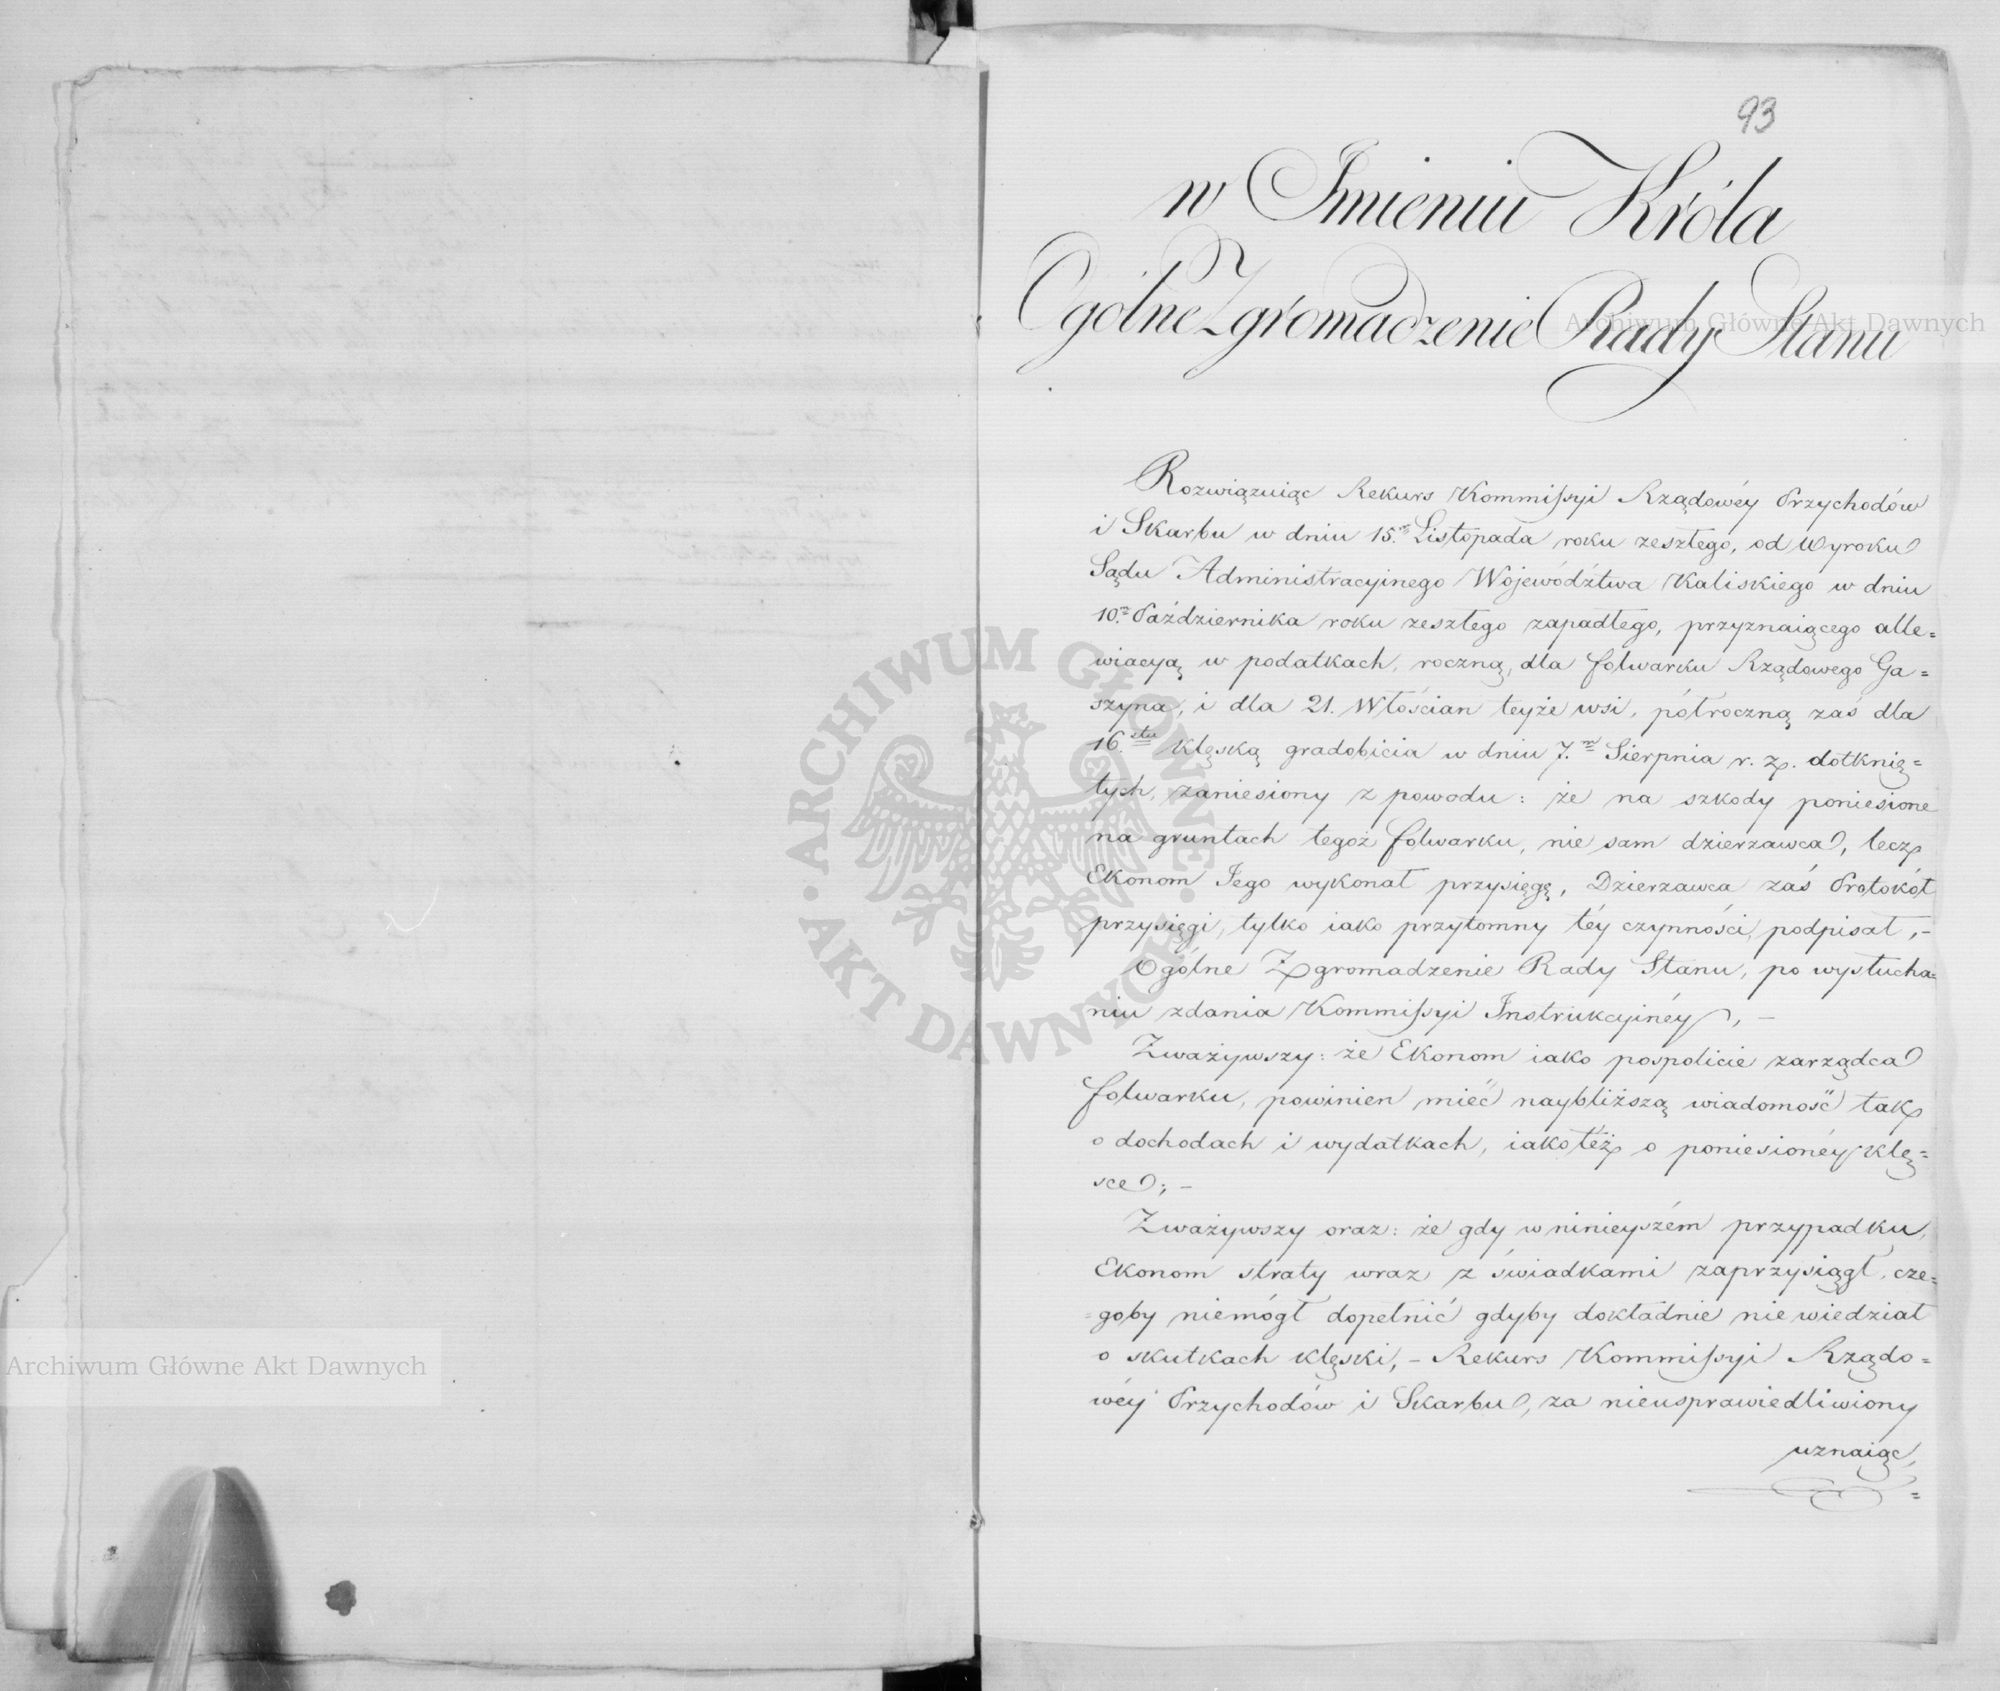 93
w Imieniu Króla
Ogólne Zgromadzenie Rady Stanu
Archiwum Główne Akt Dawnych
Rozwiązuiąc Rekurs Kommissyi Rządowéy Przychodów
i Skarbu w dniu 15.m Listopada roku zeszłego, od Wyroku
Sądu Administracyinego Województwa Kaliskiego w dniu
10.m Października roku zeszłego zapadłego, przyznaiącego alle=
wiacyą w podatkach, roczną, dla folwarku Rządowego Ga=
szyna, i dla 21. Włościan teyże wsi, półroczną zaś dla
16.stu klęską gradobicia w dniu 7.m Sierpnia r. z. dotknię=
tych, zaniesiony z powodu: że na szkody poniesione
na gruntach tegoż folwarku, nie sam dzierzawca, lecz
Ekonom Jego wykonał przysięgę, Dzierzawca zaś Protokół
przysięgi, tylko iako przytomny téy czynności, podpisał, –
Ogólne Zgromadzenie Rady Stanu, po wysłucha=
niu zdania Kommissyi Instrukcyinéy, –
Zważywszy: że Ekonom iako pospolicie zarządca
folwarku, powinien mieć naybliższą wiadomość tak
o dochodach i wydatkach, iakotéż o poniesionéy klę=
sce; –
Zważywszy oraz: że gdy w ninieyszém przypadku,
Ekonom straty wraz z świadkami zaprzysiągł, cze=
=goby niemógł dopełnić gdyby dokładnie nie wiedział
o skutkach klęski, – Rekurs Kommissyi Rządo=
wéy Przychodów i Skarbu, za nieusprawiedliwiony
uznaiąc,
ARCHIWUM GŁÓWNE · AKT DAWNYCH ·
Archiwum Główne Akt Dawnych